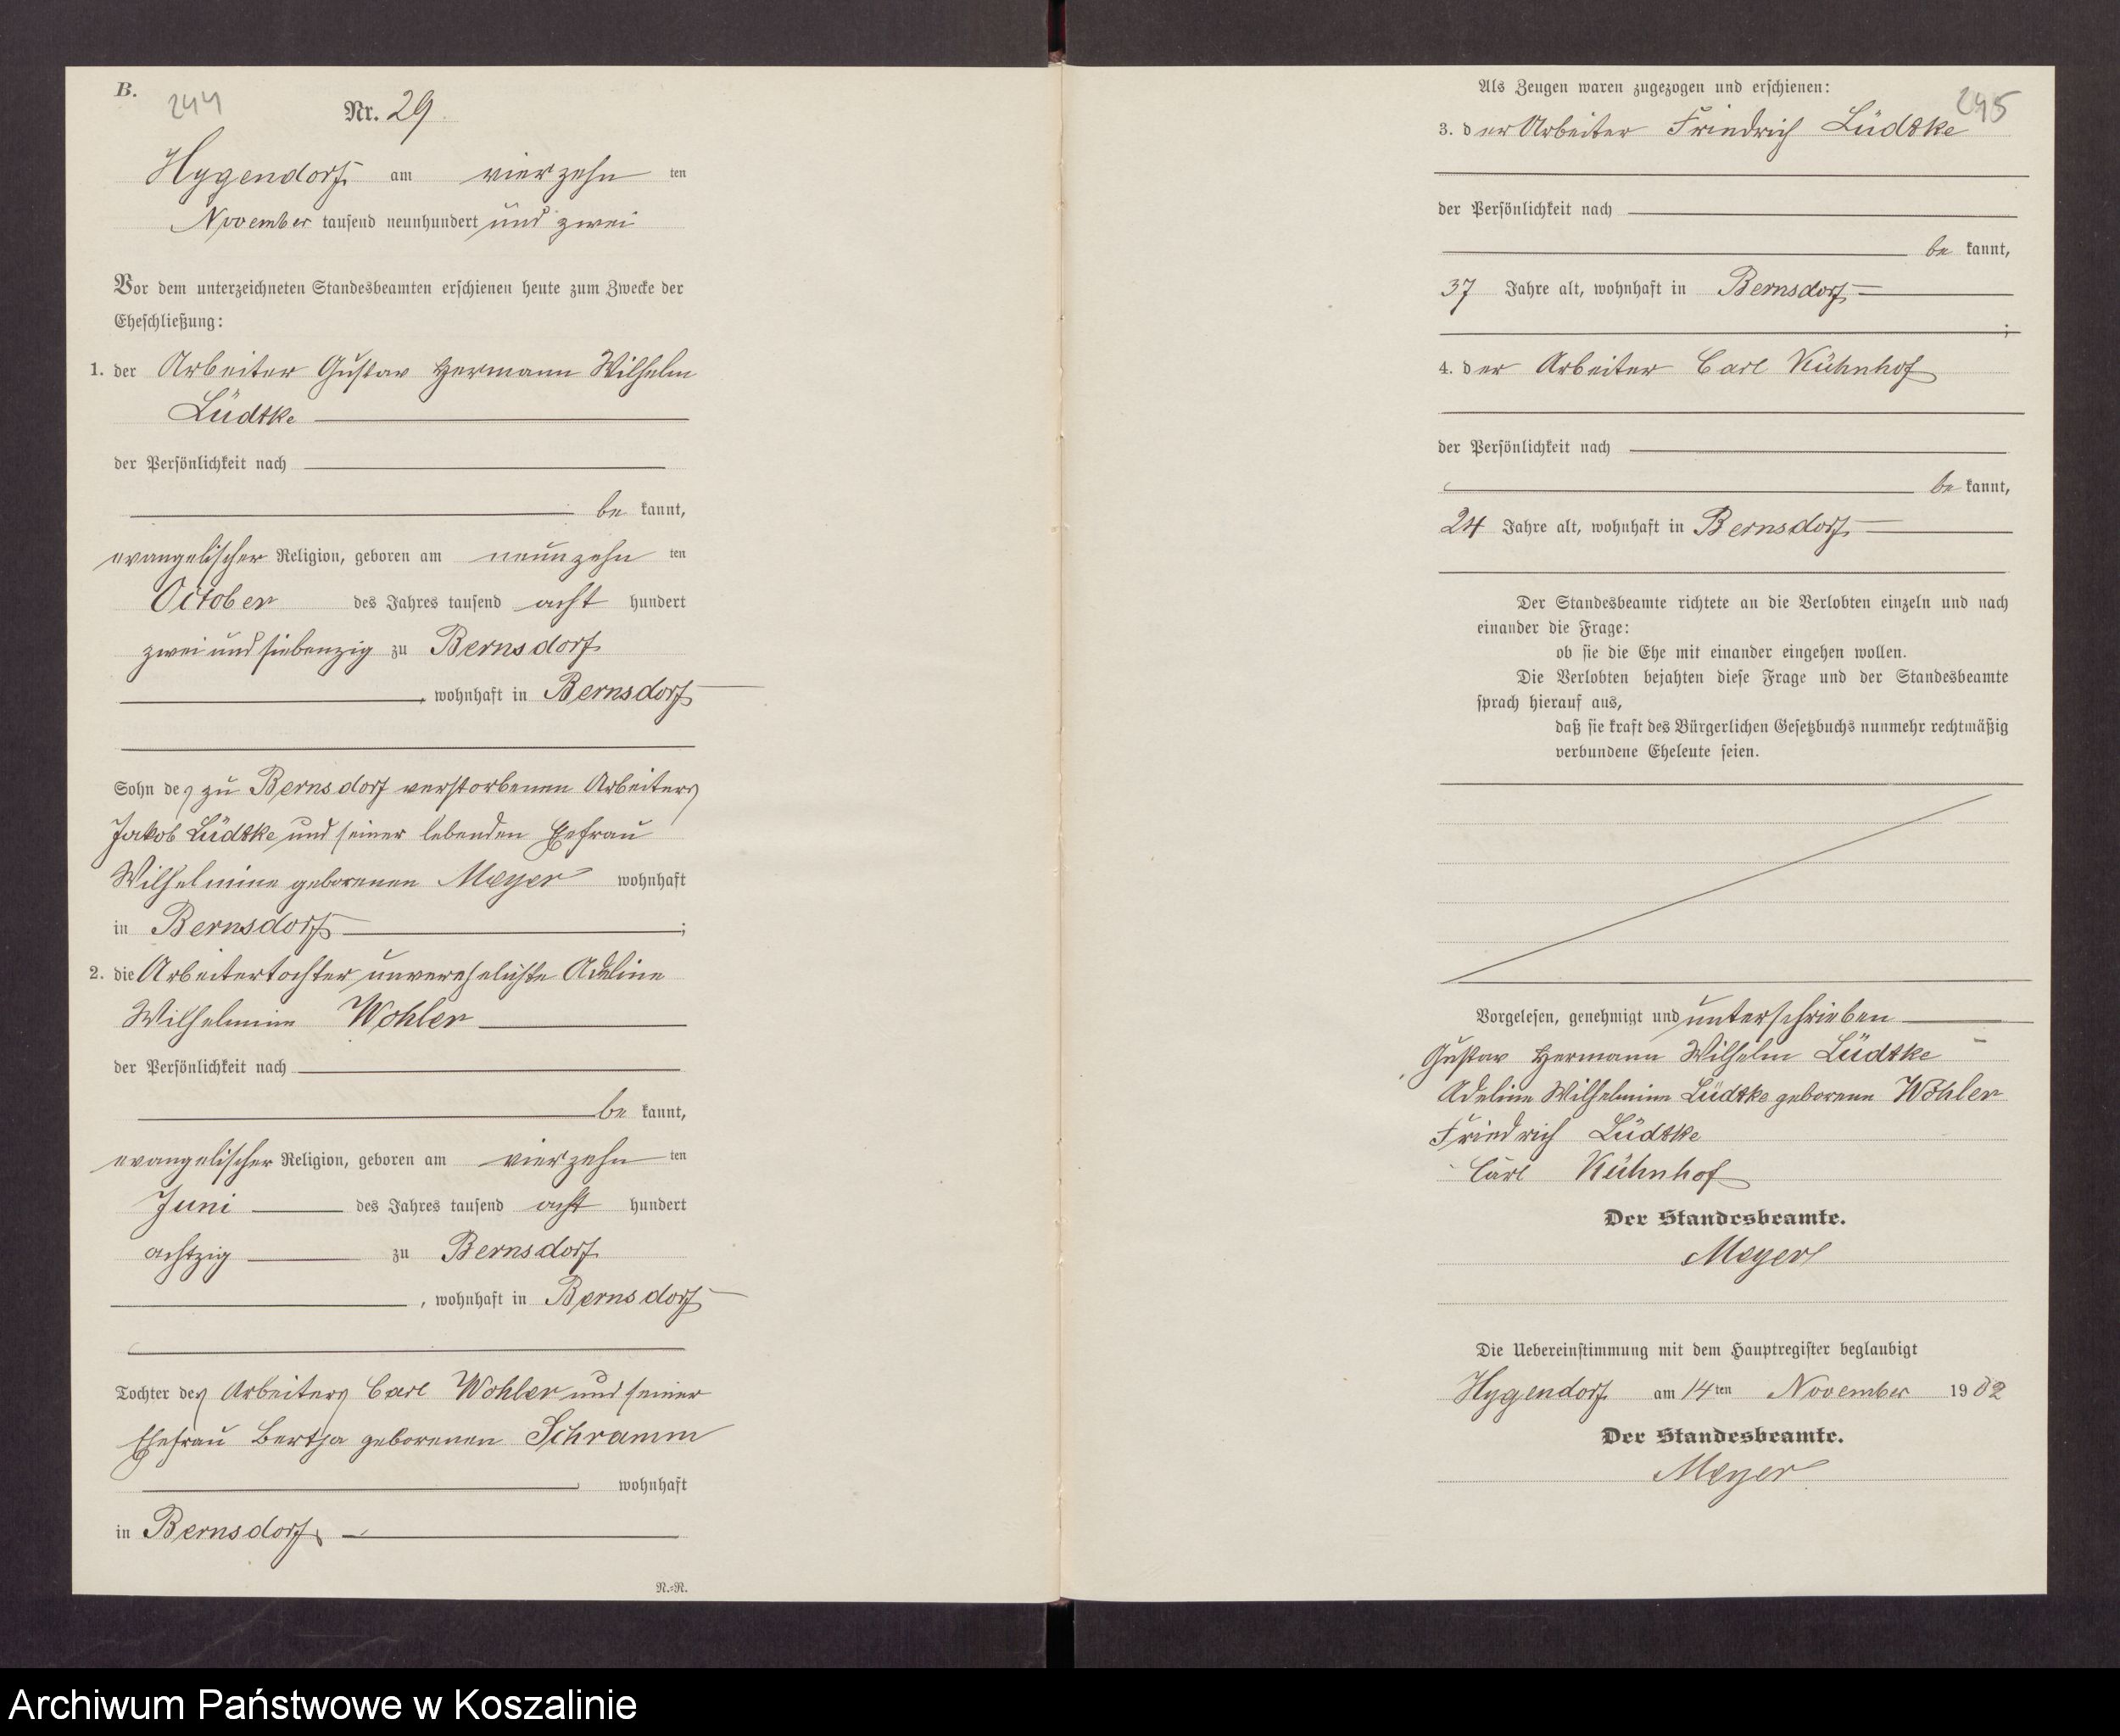 B.
244
Nr. 29
Hygendorf am vierzehn ten
November tausend neunhundert und zwei
Vor dem unterzeichneten Standesbeamten erschienen heute zum Zwecke der
Eheschließung:
1. der Arbeiter Gustav Hermann Wilhelm
Lüdtke
der Persönlichkeit nach
be kannt,
evangelischer Religion, geboren am neunzehn ten
October des Jahres tausend acht hundert
zwei und siebenzig zu Bernsdorf
, wohnhaft in Bernsdorf
Sohn des zu Bernsdorf verstorbenen Arbeiters
Jakob Lüdtke und seiner lebenden Ehefrau
Wilhelmine geborenen Meyer wohnhaft
in Bernsdorf ;
2. die Arbeitertochter, unverehelichte Adeline
Wilhelmine Wohler
der Persönlichkeit nach
be kannt,
evangelischer Religion, geboren am vierzehn ten
Juni des Jahres tausend acht hundert
achtzig zu Bernsdorf
, wohnhaft in Bernsdorf
Tochter des Arbeiters Carl Wohler und seiner
Ehefrau Bertha geborenen Schramm
wohnhaft
in Bernsdorf.
N.=N.
Als Zeugen waren zugezogen und erschienen:
245
3. der Arbeiter Friedrich Lüdtke
der Persönlichkeit nach
be kannt,
37 Jahre alt, wohnhaft in Bernsdorf
;
4. der Arbeiter Carl Kühnhof
der Persönlichkeit nach
be kannt,
24 Jahre alt, wohnhaft in Bernsdorf
Der Standesbeamte richtete an die Verlobten einzeln und nach
einander die Frage:
ob sie die Ehe mit einander eingehen wollen.
Die Verlobten bejahten diese Frage und der Standesbeamte
sprach hierauf aus,
daß sie kraft des Bürgerlichen Gesetzbuchs nunmehr rechtmäßig
verbundene Eheleute seien.
Vorgelesen, genehmigt und unterschrieben
Gustav Hermann Wilhelm Lüdtke
Adeline Wilhelmine Lüdtke geborene Wohler
Friedrich Lüdtke
Carl Kühnhof
Der Standesbeamte.
Meyer
Die Uebereinstimmung mit dem Hauptregister beglaubigt
Hygendorf am 14 ten November 1902
Der Standesbeamte.
Meyer
Archiwum Państwowe w Koszalinie